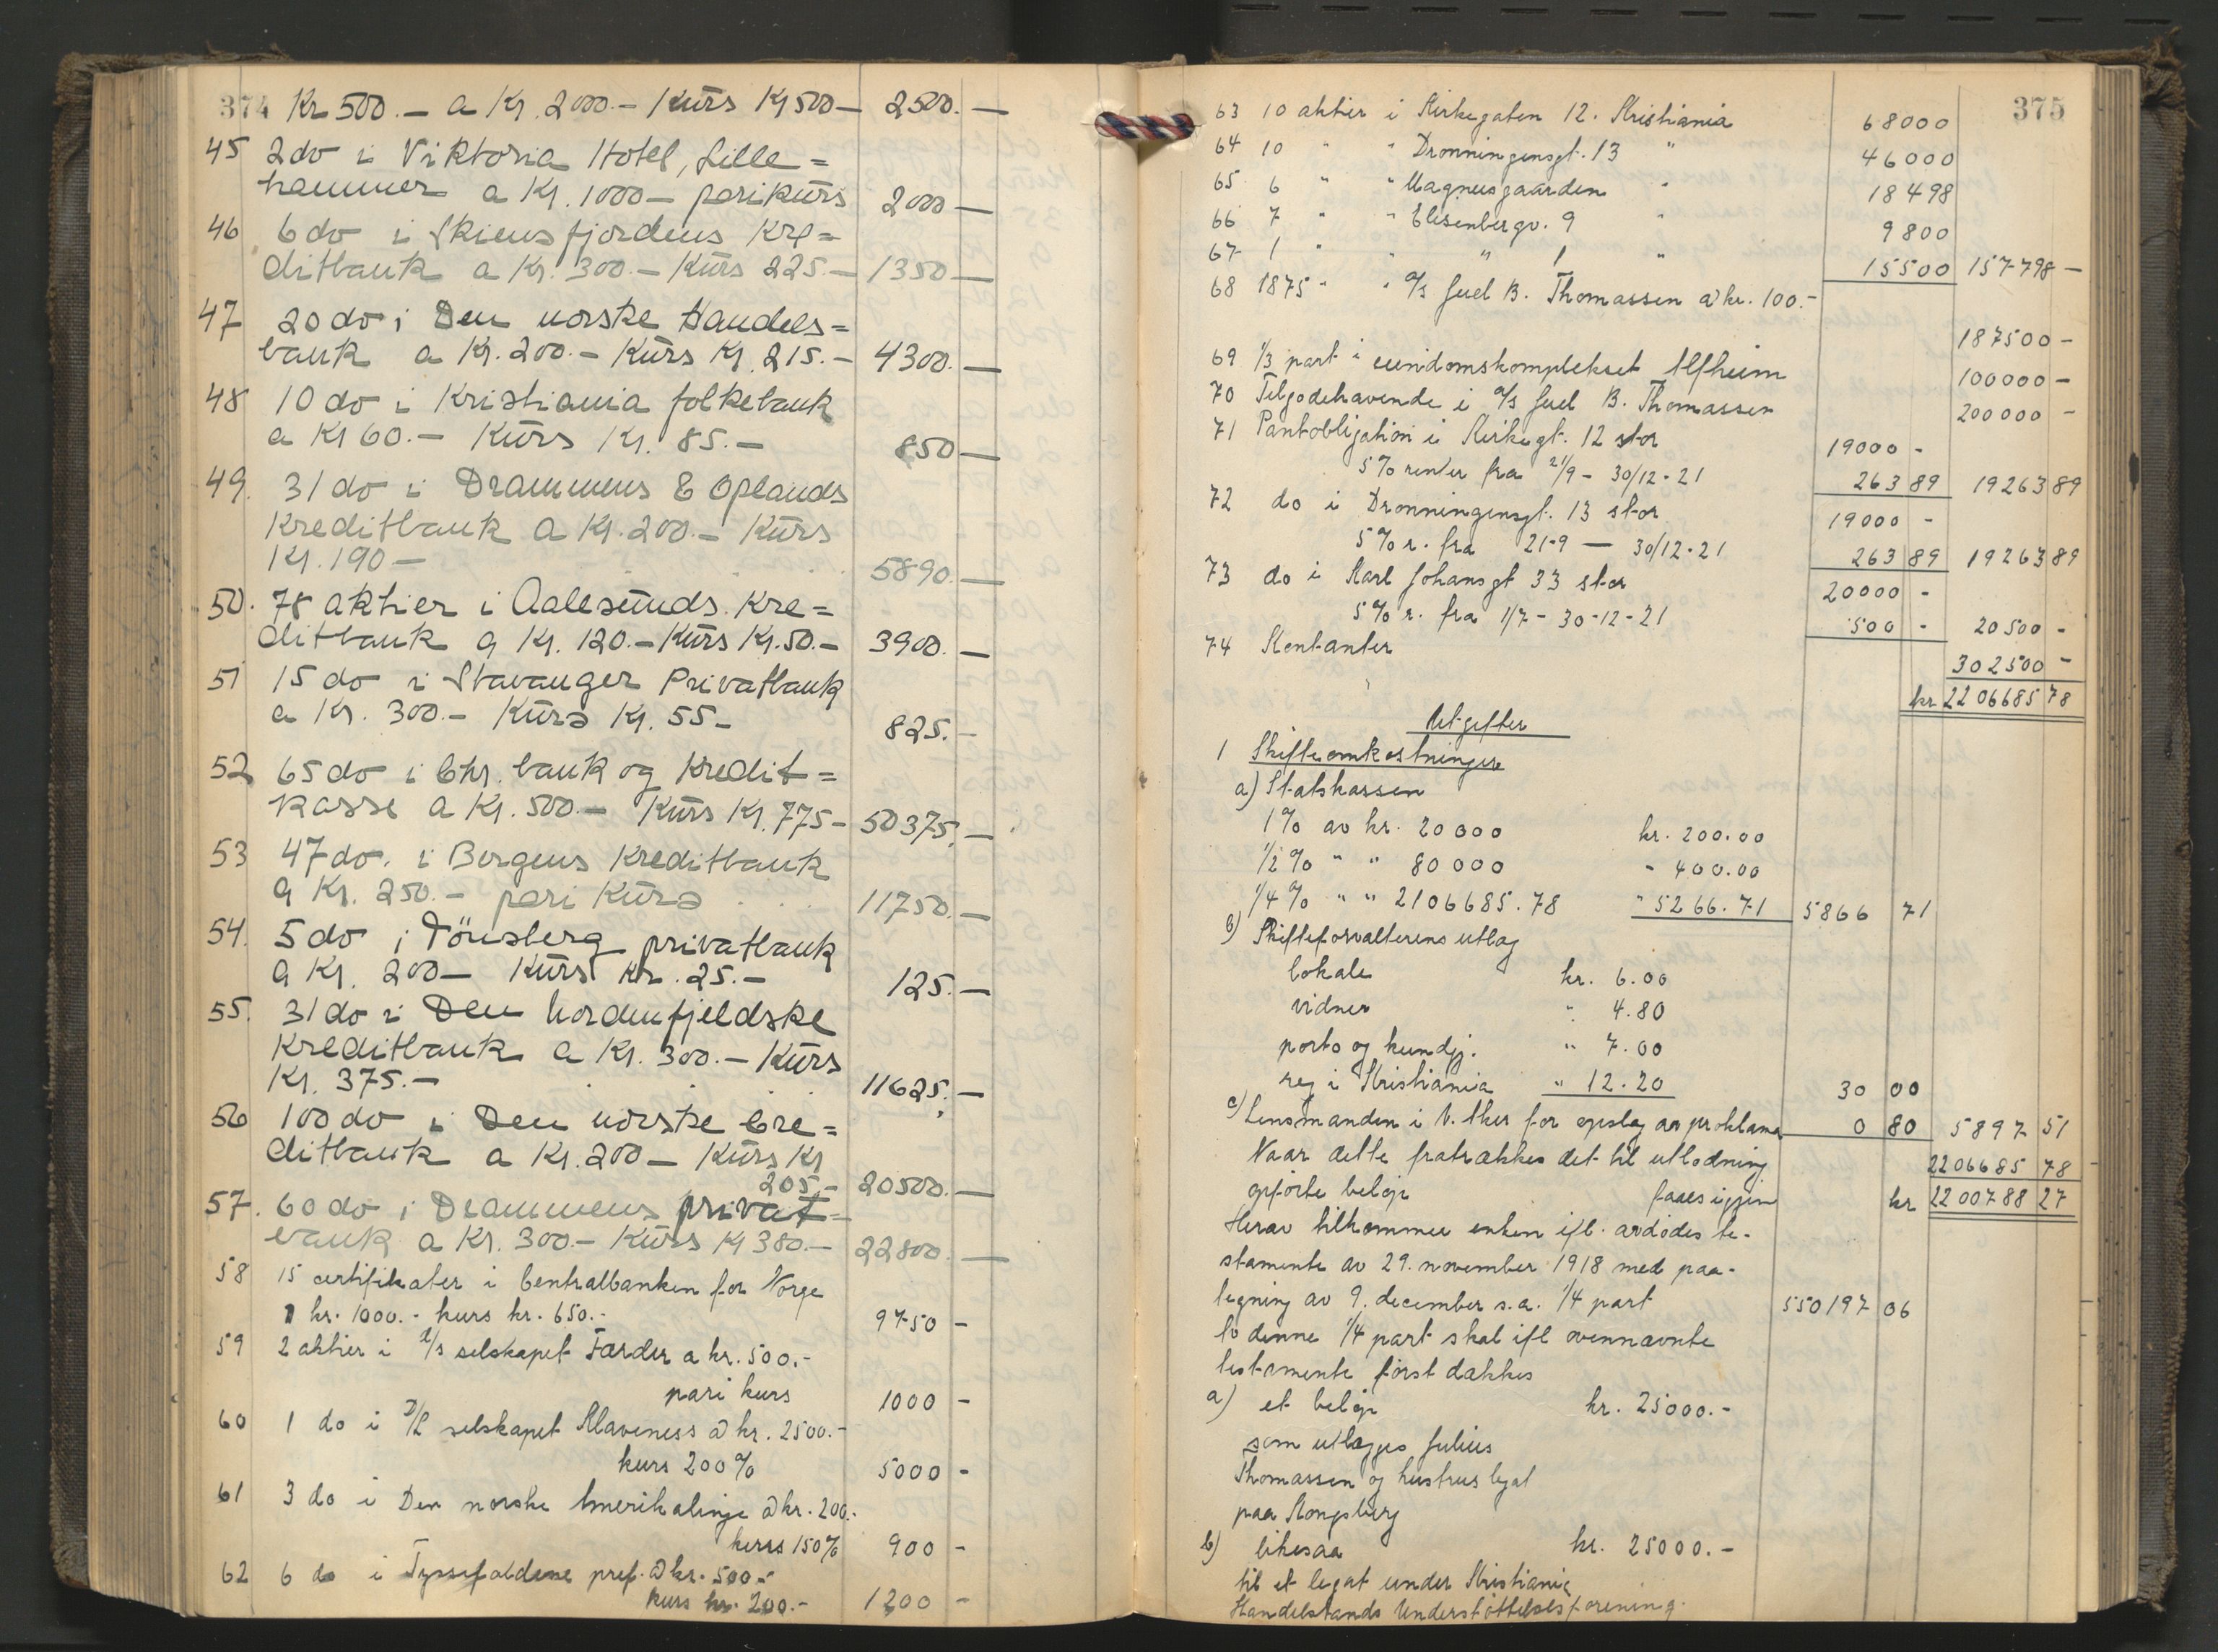 374 Kr 500.- a Kr. 2000.- Kurs Kr 500- 2500.-
45 2 do i Viktoria Hotel, Lille=
hammer a Kr. 1000- parikurs 2000-
46 6 do i Skiensfjordens Kre=
ditbank a Kr. 300.- Kurs 225.- 1350-
47 20 do i Den norske Handels=
bank a Kr. 200.- Kurs Kr. 215.- 4300.-
48 10 do i Kristiania folkebank
a Kr 60.- Kurs Kr. 85.- 850-
49. 31 do i Drammens & Oplands
Kreditbank a Kr. 200.- Kurs
Kr. 190- 5890.-
50. 78 aktier i Aalesunds Kre=
ditbank a Kr. 120.- Kurs Kr. 50.- 3900.-
51 15 do i Stavanger Privatbank
a Kr. 300.- Kurs Kr. 55- 825.-
52 65 do i Chr. bank og Kredit=
kasse a Kr. 500.- Kurs Kr. 775- 50375.-
53 47 do. i Bergens Kreditbank
a Kr. 250.- pari Kurs . . . 11750.-
54. 5 do i Tönsberg privatbank
a Kr. 200- Kurs Kr. 25.- 125.-
55. 31 do i Den Nordenfjeldske
Kreditbank a Kr. 300.- Kurs
Kr. 375.- 11625.-
56 100 do i Den norske Cre=
ditbank a Kr. 200- Kurs Kr
205.- 20500.-
57. 60 do i Drammens privat=
bank a Kr. 300.- Kurs Kr 380.- 22800.-
58 15 certifikater i Centralbanken for Norge
a kr. 1000.- kurs kr. 650.- 9750 -
59 2 aktier i D/s selskapet Færder a kr. 500.-
pari kurs 1000 -
60 1 do i D/S selskapet Klaveness a kr. 2500.-
kurs 200% 5000 -
61 3 do i Den norske Amerikalinje a kr. 200.-
kurs 150% 900 -
62 6 do i Tyssefaldene pref. a kr. 500.-
kurs kr. 200.- 1200 -
375
63 10 aktier i Kirkegaten 12. Kristiania 68000
64 10 " " Dronningensgt. 13 " 46000
65 6 " " Magnusgaarden " 18498
66 7 " " Elisenbergv. 9 " 9800
67 1 " " " 1 " 15500 157798 -
68 1875 " " A/s Juel B. Thomassen a kr. 100.-
187500 -
69 1/3 part i eiendomskomplekset Alfheim 100000 -
70 Tilgodehavende i A/s Juel B. Thomassen 200000 -
71 Pantobligation i Kirkegt. 12 stor 19000 -
5% renter fra 21/9 - 30/12-21 263 89 19263 89
72 do i Dronningensgt. 13 stor 19000 -
5% r. fra 21-9 - 30/12-21 263 89 19263 89
73 do i Karl Johansgt 33 stor 20000 -
5% r. fra 1/7 - 30-12-21 500 - 20500 -
74 Kontanter 302500 -
kr 2206685 78
Utgifter
1 Skifteomkostninger
a) Statskassen
1% av kr. 20000 kr. 200.00
1/2% " " 80000 - 400.00
1/4% " " 2106685.78 " 5266.71 5866 71
b) Skifteforvalterens utlæg
lokale kr. 6.00
vidner " 4.80
porto og kundgj. " 7.00
reg i Kristiania " 12.20 30 00
c) Lensmanden i V. Aker for opslag av proklama 0 80 5897 51
Naar dette fratrækkes det til utlodning 2206685 78
opførte beløp faaes igjen kr 2200788 27
Herav tilkommer enken ifl. avdødes te-
stamente av 29. november 1918 med paa-
tegning av 9. december s.a. 1/4 part 550197 06
Av denne 1/4 part skal ifl ovennævnte
testamente først dækkes
a) et beløp kr. 25000.-
som utlægges Julius
Thomassen og hustrus legat
paa Kongsberg
b) likesaa kr. 25000.-
til et legat under Kristiania
Handelstands Understøttelsesforening.